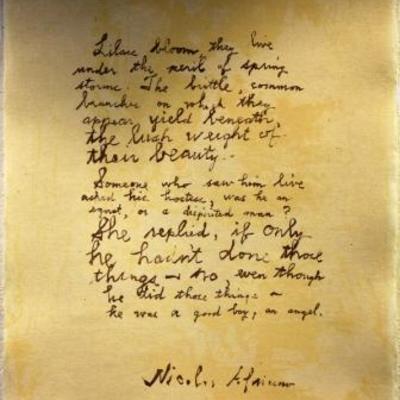 Lilacs bloom, they live
under the peril of spring
storms. The brittle, common
branches on which they
appear, yield beneath,
the lush weight of
their beauty..
Someone who saw him live
asked his hostess, was he an
or a dispirited man?
She replied, if only
he hadn't done those
things — no, even though
he did those things —
he was a good boy, an angel.
Nicolas